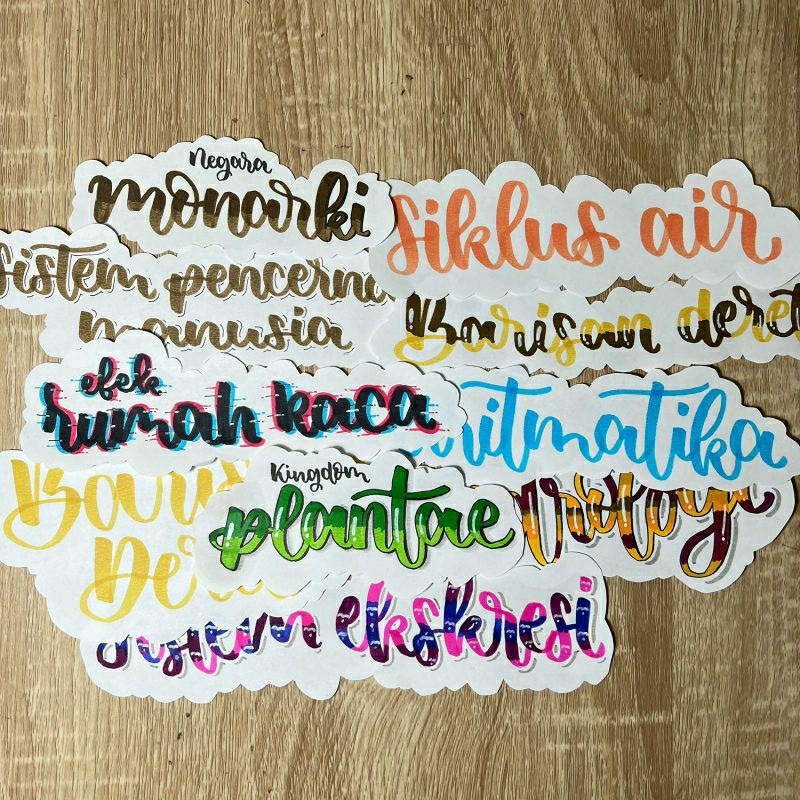 Negara
monarki
siklus air
sistem pencerna
manusia
Barisan deret
efek
rumah kaca
aritmatika
Kingdom
plantae
sistem ekskresi